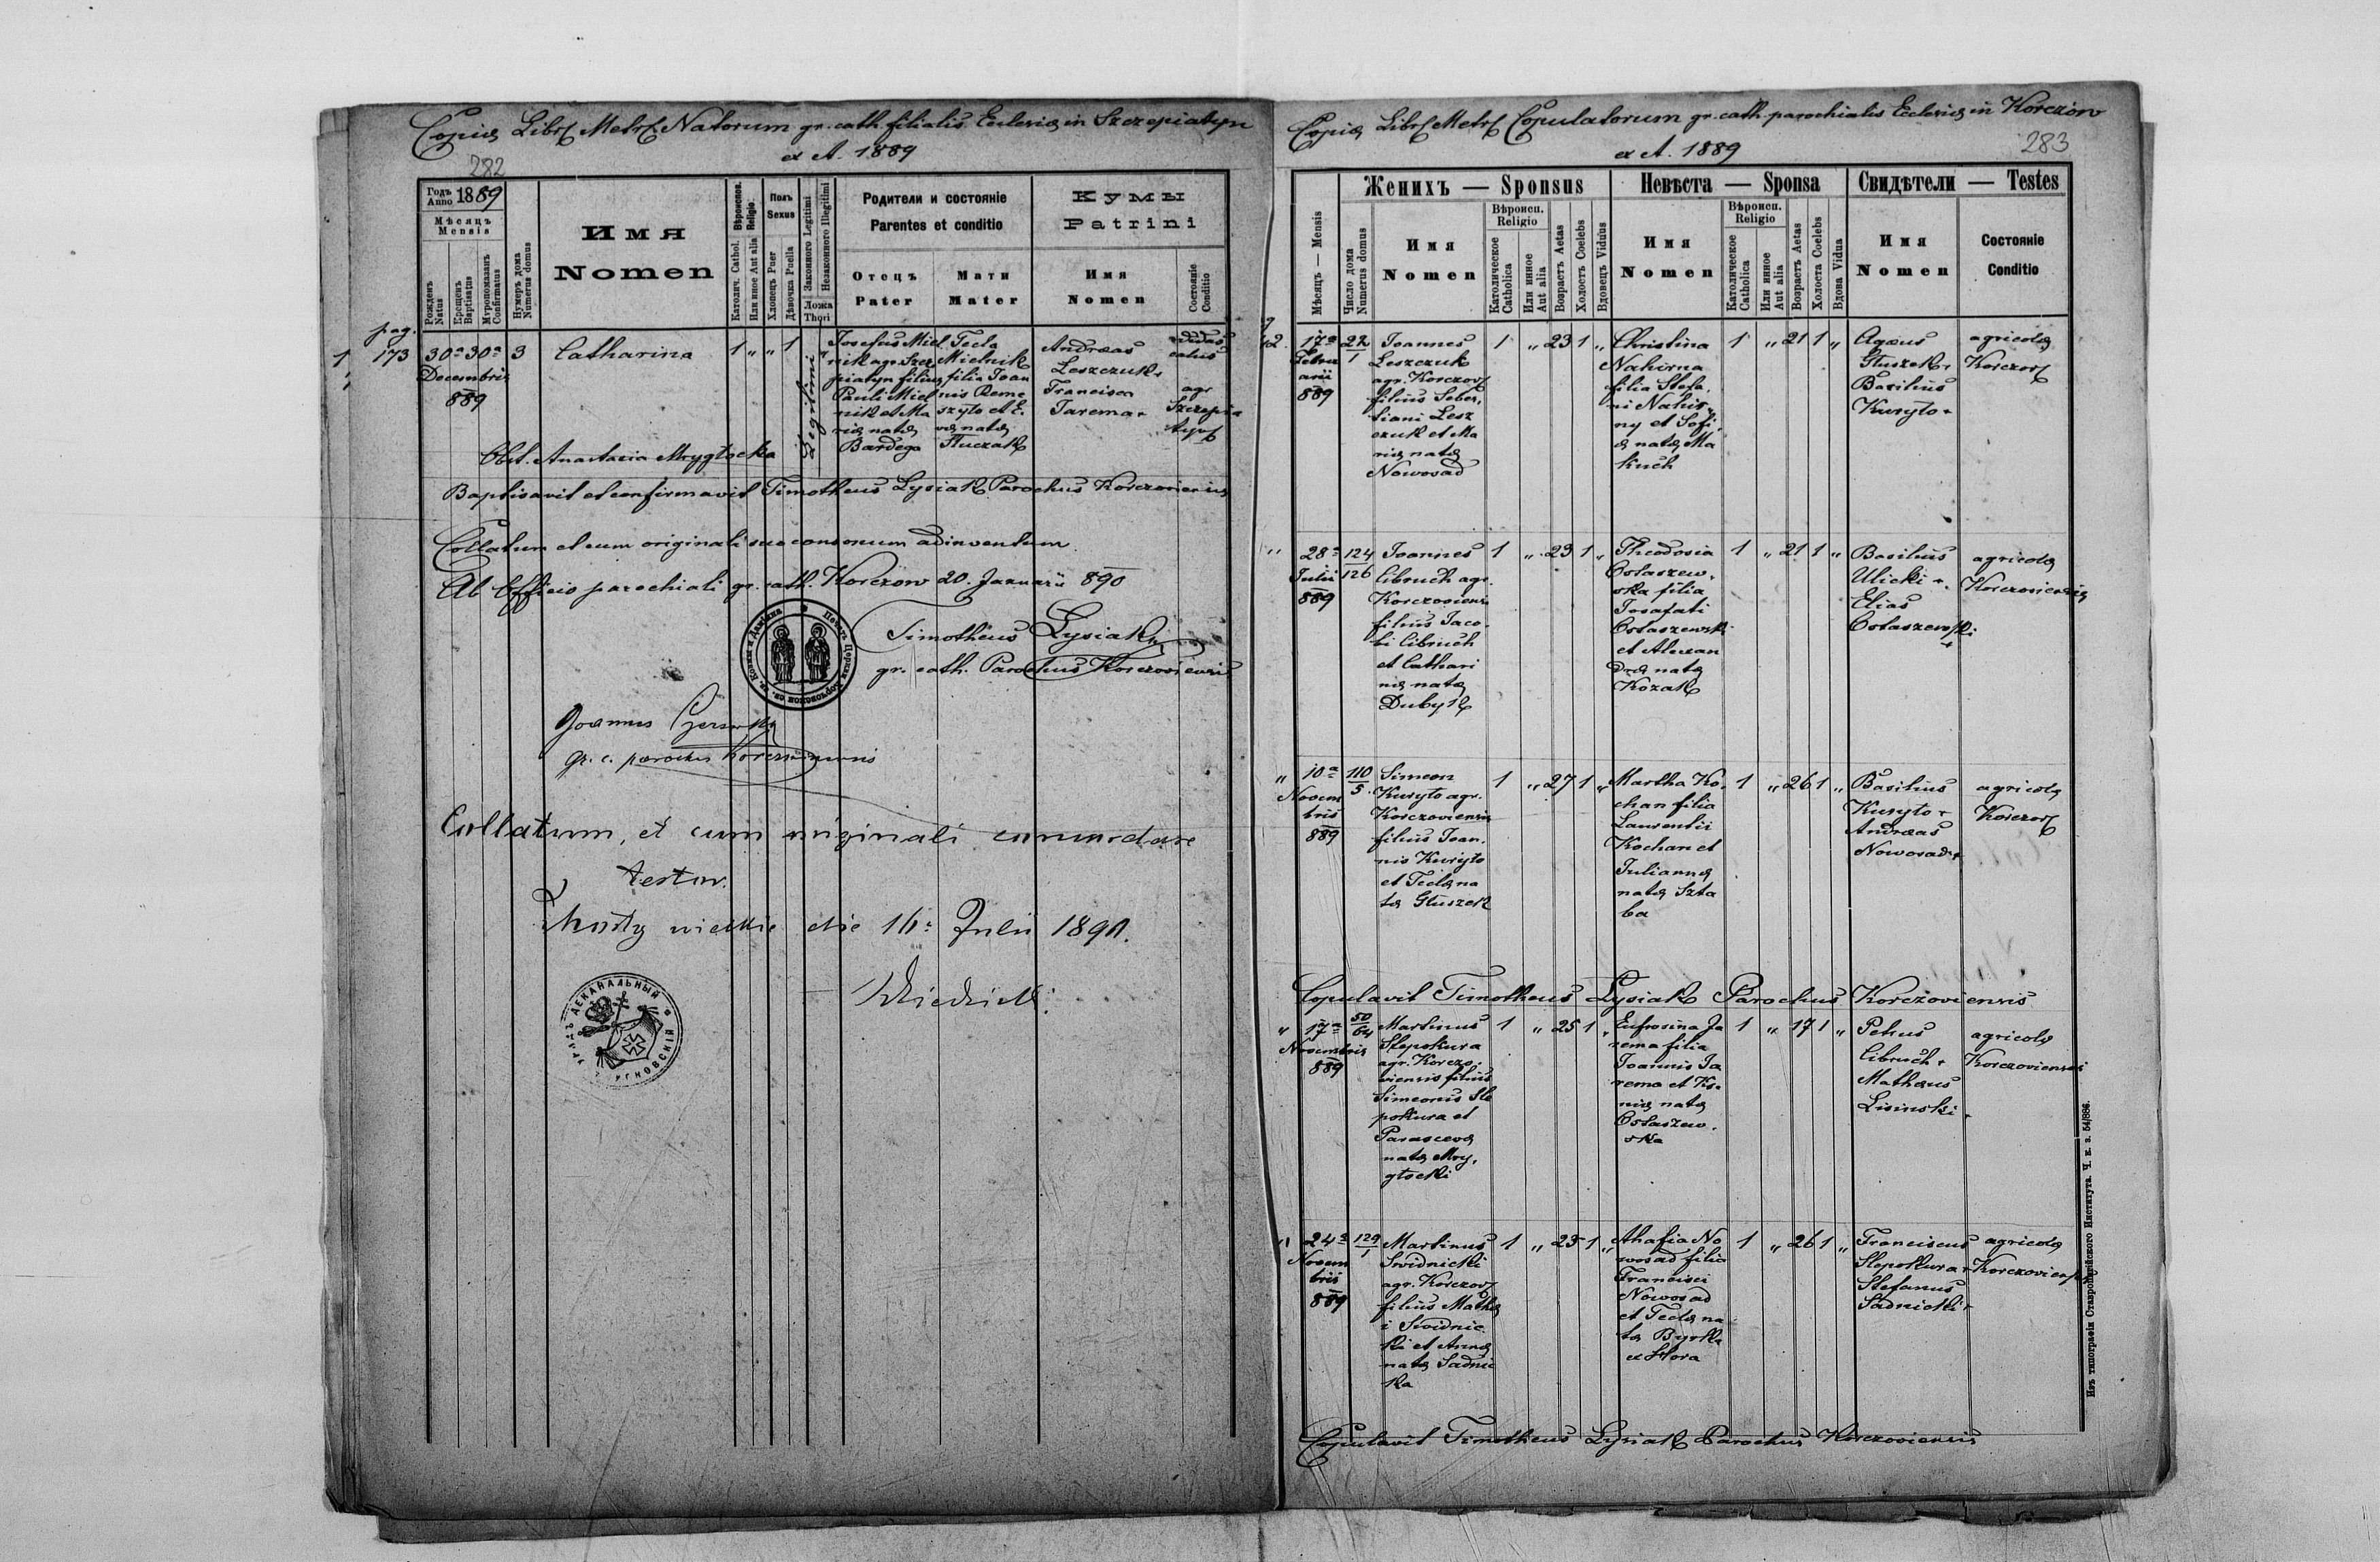 Copia Libri Metr. Natorum gr. cath. filialis Ecclesiæ in Szczepiatyn
ex A. 1889
282
Годъ Anno 1889
Мѣсяцъ
Mensis
Рожденъ Natus
Крещенъ Baptisatus
Мѵропомазанъ Confirmatus
Нумеръ дома Numerus domus
Имя
Nomen
Вѣроиспов. Religio
Католич. Cathol.
Или иное Aut alia
Полъ
Sexus
Хлопецъ Puer
Дѣвочка Puella
Законного Legitimi
Незаконного Illegitimi
Ложа
Thori
Родители и состояніе
Parentes et conditio
Отецъ
Pater
Мати
Mater
Кумы
Patrini
Имя
Nomen
Состояніе
Conditio
pag.
1 173 30a 30a 3 Catharina 1 " " 1 Legitimi
Decembris
889
Josefus Miel
nik agr. Szcze
piatyn filius
Pauli Miel
nik et Ma
riæ natæ
Bardega
Tecla
Mielnik
filia Joan
nis Reme
szylo et E
væ natæ
Tluczak
Andreas
Leszczuk +
Francisca
Jarema +
agr
Szczepia
Obst. Anastasia Mrygłocka
Baptisavit et confirmavit Timotheus Łysiak Parochus Korczoviensis
Collatum et cum originali suo consonum adinventum
Ab Officio parochiali gr. cath. Korczow 20. Januarii 890
Timotheus Łysiak
gr. cath. Parochus Korczoviensis
Joannes
gr. c. parochus
Collatum, et cum originali concordare
testor.
Mosty wielkie die 16a Julii 1890.
283
Copia Libri Metr. Copulatorum gr. cath. parochialis Ecclesiæ in Korczow
ex A. 1889
Женихъ — Sponsus
Невѣста — Sponsa
Свидѣтели — Testes
Мѣсяцъ — Mensis
Число дома
Numerus domus
Имя
Nomen
Вѣроисп.
Religio
Католическое
Catholica
Или инное
Aut alia
Возрастъ Aetas
Холостъ Coelebs
Вдовецъ Viduus
Имя
Nomen
Вѣроисп.
Religio
Католическое
Catholica
Или инное
Aut alia
Возрастъ Aetas
Холоста Coelebs
Вдова Vidua
Имя
Nomen
Состояніе
Conditio
17a
Febru
arii
889
22
1
Joannes
Leszczuk
agr. Korczov
filius Sebas
tiani Lesz
czuk et Ma
riæ natæ
Nowosad
1 " 23 1 "
Christina
Nahirna
filia Stefa
ni Nahir
ny et Sofi
æ natæ Ma
kuch
1 " 21 1 "
Głuszek +
Basilius
Kuryło +
agricolæ
Korczov
28a
Julii
889
124
126
Joannes
Cibruch agr.
Korczoviensis
filius Jaco
bi Cibruch
et Cathari
næ natæ
Dubyk
1 " 23 1 "
Theodosia
Ostaszew
ska filia
Josafati
Ostaszewski
et Alexan
dræ natæ
Kozak
1 " 21 1 "
Basilius
Ulicki +
Elias
Ostaszewski
+
agricolæ
Korczoviensis
10a
Novem
bris
889
110
5
Simeon
Kuryło agr.
Korczoviensis
filius Joan
nis Kuryło
et Teclæ na
tæ Głuszek
1 " 27 1 "
Martha Ko
chan filia
Laurentii
Kochan et
Juliannæ
natæ Szta
ba
1 " 26 1 "
Basilius
Kuryło +
Andreas
Nowosad +
agricolæ
Korczov
Copulavit Timotheus Łysiak Parochus Korczoviensis
17a
Novembris
889
50
64
Martinus
Slepokura
agr. Korczo
viensis filius
Simeonis Sle
pokura et
Parascevæ
natæ Mry
głocki
1 " 25 1 "
Eufrosina Ja
rema filia
Joannis Ja
rema et Kse
niæ natæ
Ostaszew
ska
1 " 17 1 "
Petrus
Cibruch +
Mathæus
Lisinski +
agricolæ
Korczoviensis
24a
Novem
bris
889
129
1
Martinus
Swidnicki
agr. Korczov
filius Mathæ
i Swidnic
ki et Annæ
natæ Sadnic
ka
1 " 25 1 "
Ahafia No
wosad filia
Francisci
Nowosad
et Teclæ na
tæ Byrka
1 " 26 1 "
Franciscus
Slepokura +
Stefanus
Sadnicki +
agricolæ
Korczoviensis
Copulavit Timotheus Łysiak Parochus Korczoviensis
Изъ типографіи Ставропигійского Института. Ч. к. з. 54/886.